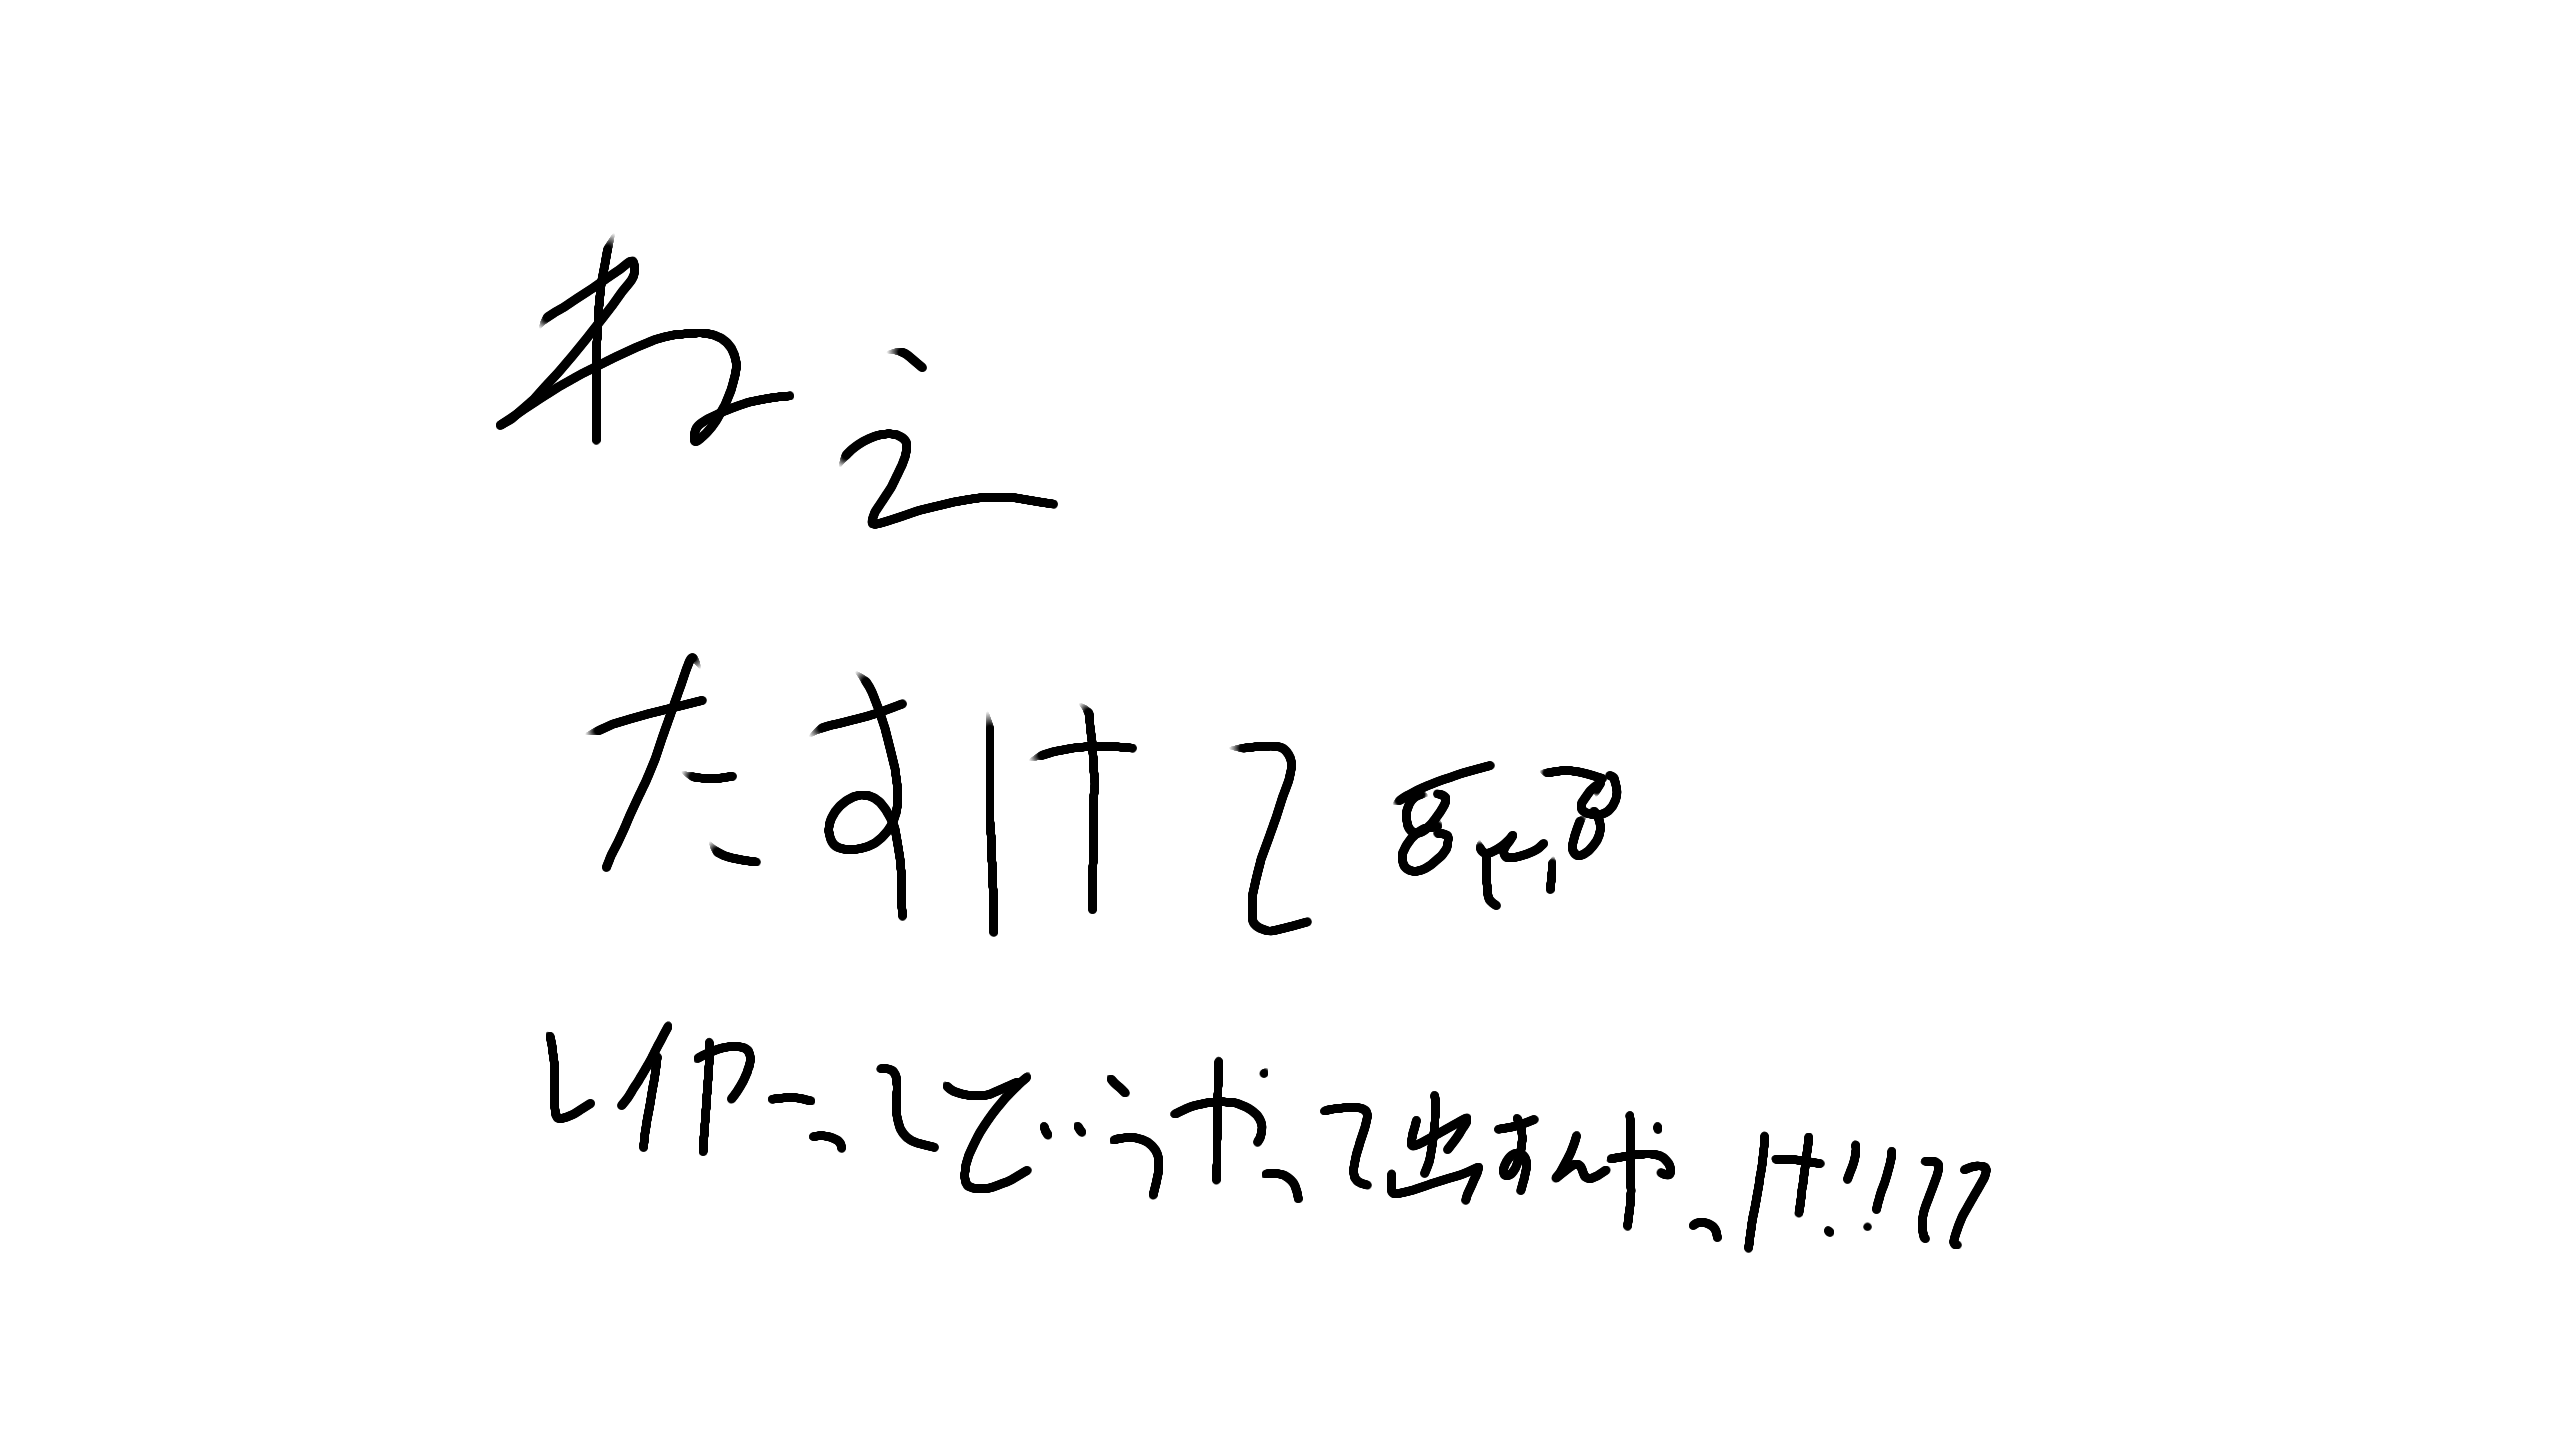 ねえ
たすけて
レイヤーってどうやって出すんやっけ!!??